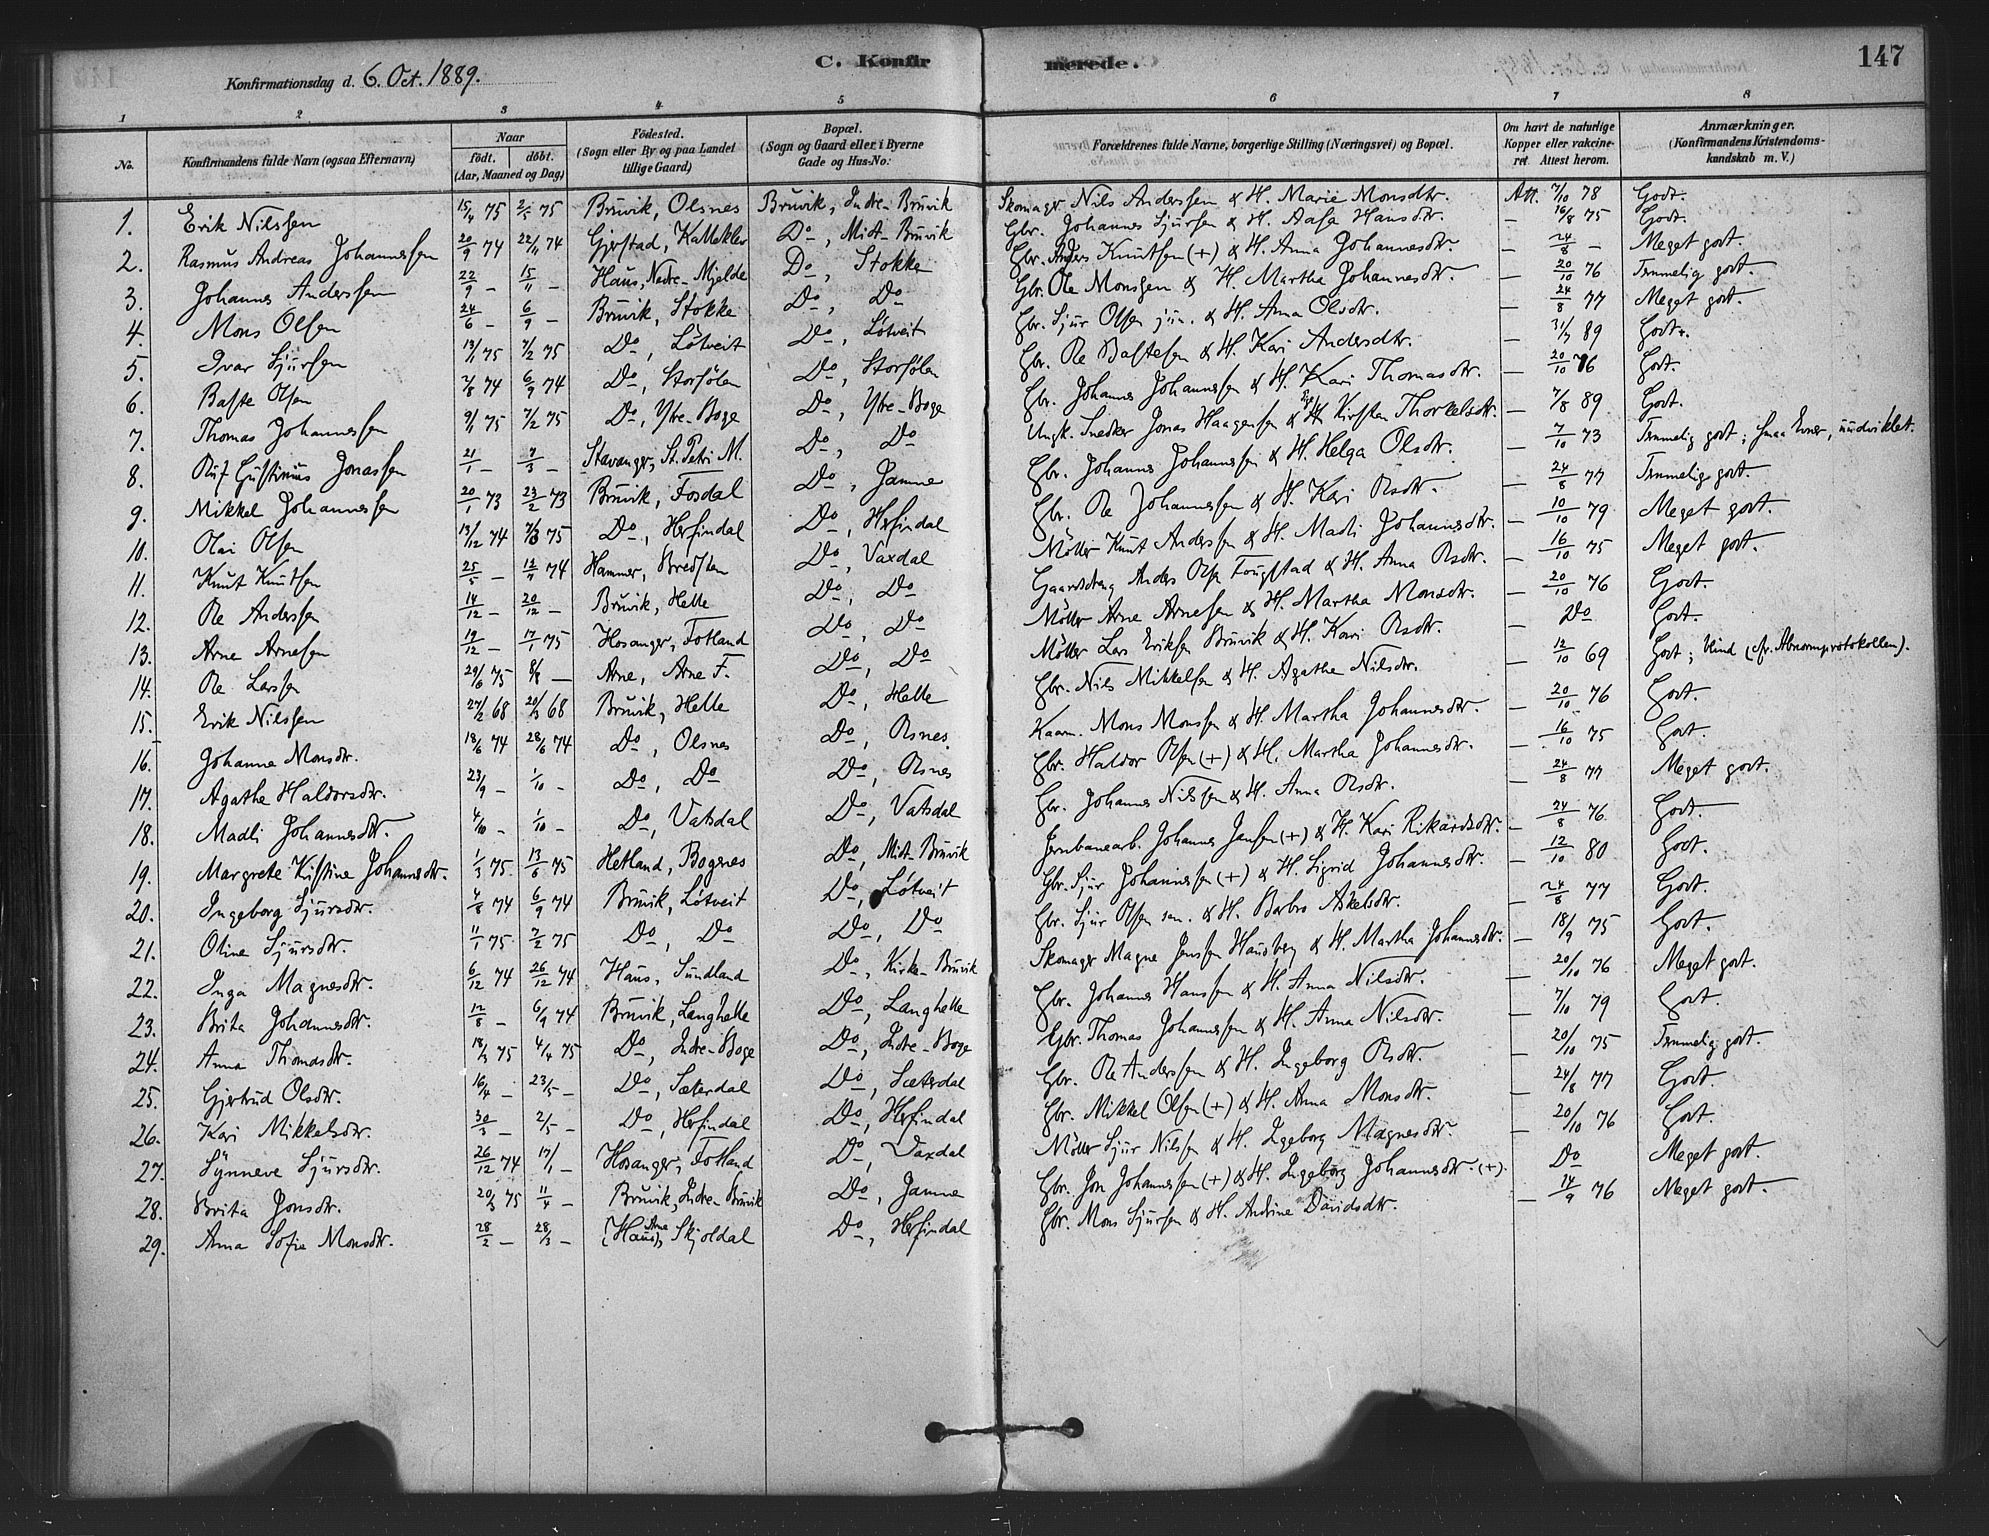 C. Konfirmerede. 147
Konfirmationsdag d. 6. Oct. 1889.
1 2 3 4 5 6 7 8
No. Konfirmandens fulde Navn (ogsaa Efternavn) Naar født. døbt. (Aar, Maaned og Dag) Fødested. (Sogn eller By og paa Landet tillige Gaard) Bopæl. (Sogn og Gaard eller i Byerne Gade og Hus-No: Forældrenes fulde Navne, borgerlige Stilling (Næringsvei) og Bopæl. Om havt de naturlige Kopper eller vakcineret. Attest herom. Anmærkninger. (Konfirmandens Kristendomskundskab m. V.)
1. Erik Nilssen 15/4 75 2/5 75 Bruvik, Olsnes Bruvik, Indre-Bruvik Skomager Nils Anderssen & H. Marie Monsdtr. Att. 7/10 78 Godt.
2. Rasmus Andreas Johannessen 20/9 74 22/11 74 Gjerstad, Kallekler Do, Midt-Bruvik Gbr. Johannes Sjursen & H. Aasa Hansdtr. - 16/8 75 Godt.
3. Johannes Anderssen 22/9 - 15/11 - Haus, Nedre-Mjelde Do, Stokke Gbr. Anders Knutsen (+) & H. Anna Johannesdtr. - 24/8 - Meget godt.
4. Mons Olsen 24/6 - 6/9 - Bruvik, Stokke Do, Do Gbr. Ole Monssen & H. Martha Johannesdtr. - 20/10 76 Temmelig godt.
5. Ivar Sjursen 13/1 75 7/2 75 Do, Løtveit Do, Løtveit Gbr. Sjur Olsen jun. & H. Anna Olsdtr. - 24/8 77 Meget godt.
6. Baste Olsen 7/8 74 6/9 74 Do, Storfølen Do, Storfølen Gbr. Ole Bastesen & H. Kari Andersdtr. - 31/7 89 Godt.
7. Thomas Johannessen 9/1 75 7/2 75 Do, Ytre-Boge Do, Ytre-Boge Gbr. Johannes Johannessen & H. Kari Thomasdtr. - 20/10 76 Godt.
8. Gustinius Jonassen 21/1 - 7/3 - Stavanger, St. Petri M. Do, Do Ungk. Snedker Jonas Haagensen & Kirsten Thorkelsdtr. - 7/8 89 Godt.
9. Mikkel Johannessen 20/1 73 23/2 73 Bruvik, Fosdal Do, Jamne Gbr. Johannes Johannessen & H. Helga Olsdtr. - 7/10 73 Temmelig godt; smaa Evner, uudviklet.
10. Olai Olsen 13/12 74 7/3 75 Do, Herfindal Do, Herfindal Gbr. Ole Johannessen & H. Kari Olsdtr. - 24/8 77 Temmelig godt.
11. Knut Knutsen 25/5 - 12/7 74 Hammer, Bredsten Do, Vaxdal Møller Knut Anderssen & H. Madli Johannesdtr. - 10/10 79 Meget godt.
12. Ole Anderssen 14/12 - 20/12 - Bruvik, Helle Do, Do Gaardsdreng Anders Olsen & H. Anna Olsdtr. - 16/10 75 Meget godt.
13. Arne Arnesen 19/12 - 17/1 75 Hosanger, Fotland Do, Do Møller Arne Arnesen & H. Martha Monsdtr. - 20/10 76 Godt.
14. Ole Larssen 29/6 75 8/8 - Arne, Arne F. Do, Do Møller Lars Eriksen Bruvik & H. Kari Olsdtr. - Do Godt.
15. Erik Nilssen 27/2 68 20/3 68 Bruvik, Helle Do, Helle Gbr. Nils Mikkelsen & H. Agathe Nilsdtr. - 12/10 69 Godt; blind (cfr. Abnormprotokollen).
16. Johanne Monsdtr. 18/6 74 28/6 74 Do, Olsnes Do, Olsnes. Kaarm. Mons Monssen & H. Martha Johannesdtr. - 20/10 76 Godt.
17. Agathe Haldorsdtr. 23/9 - 1/10 - Do, Do Do, Olsnes Gbr. Haldor Olsen (+) & H. Martha Johannesdtr. - 16/10 75 Godt.
18. Madli Johannesdtr. 4/10 - 1/10 - Do, Vatsdal Do, Vatsdal Gbr. Johannes Nilssen & H. Anna Olsdtr. - 24/8 77 Meget godt.
19. Margrete Kistine Johannesdtr. 1/3 75 13/6 75 Hetland, Bognes Do, Midt-Bruvik Jernbanearb. Johannes Jansen (+) & H. Kari Rikardsdtr. - 24/8 76 Godt.
20. Ingeborg Sjursdtr. 4/8 74 6/9 74 Bruvik, Løtveit Do, Løtveit Gbr. Sjur Johannessen (+) & H. Sigrid Johannesdtr. - 12/10 80 Godt.
21. Oline Sjursdtr. 11/1 75 7/2 75 Do, Do Do, Do Gbr. Sjur Olsen sen. & H. Barbro Askelsdtr. - 24/8 77 Godt.
22. Inga Magnesdtr. 6/12 74 26/12 74 Haus, Sundland Do, Kirke-Bruvik Skomager Magne Jenssen Hausberg & H. Martha Johannesdtr. - 18/9 75 Godt.
23. Brita Johannesdtr. 12/8 - 6/9 74 Bruvik, Langhelle Do, Langhelle Gbr. Johannes Hanssen & H. Anna Nilsdtr. - 20/10 76 Meget godt.
24. Anna Thomasdtr. 18/3 75 4/4 75 Do, Indre-Boge Do, Indre-Boge Gbr. Thomas Johannessen & H. Anna Nilsdtr. - 7/10 79 Godt.
25. Gjertrud Olsdtr. 16/4 - 23/5 - Do, Sæterdal Do, Sæterdal Gbr. Ole Anderssen & H. Ingeborg Olsdtr. - 20/10 75 Temmelig godt.
26. Kari Mikkelsdtr. 30/3 - 2/5 - Do, Herfindal Do, Herfindal Gbr. Mikkel Olsen (+) & H. Anna Monsdtr. - 24/8 77 Godt.
27. Synneve Sjursdtr. 26/12 74 17/1 - Hosanger, Fotland Do, Vaxdal Møller Sjur Nilssen & H. Ingeborg Magnesdtr. - 20/10 76 Godt.
28. Brita Jonsdtr. 20/3 75 11/4 - Bruvik, Indre-Bruvik Do, Jamne Gbr. Jon Johannessen (+) & H. Ingeborg Johannesdtr. (+). Do Meget godt.
29. Anna Sofie Monsdtr. 28/2 - 28/3 - (Haus), Arne Skjoldal Do, Herfindal Gbr. Mons Sjursen & H. Andrine Davidsdtr. - 14/9 76 Meget godt.